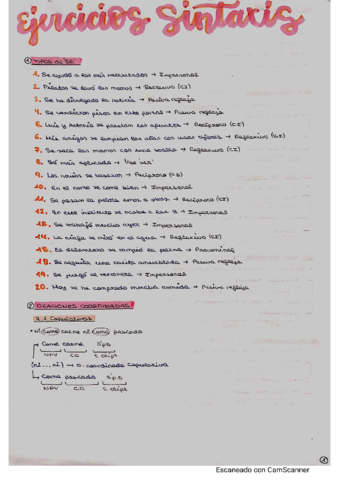 Ejercicios Sintaxis
① TIPOS de "SE"
1. Se ayudó a los más necesitados → Impersonal
2. Pilatos se lavó las manos → Reflexivo (CI)
3. Se ha divulgado la noticia → Pasiva refleja
4. Se vendieron pisos en este portal → Pasiva refleja
5. Luis y Antonio se prestan los apuntes → Recíproco (CI)
6. Mis amigos se limpian las uñas con unas tijeras → Reflexivo (CI)
7. Se seca las manos con una toalla → Reflexivo (CI)
8. Sé más aplicado →
9. Los novios se besaron → Recíproco (CD)
10. En el norte se come bien → Impersonal
11. Se pasan la pelota unos a otros → Recíproco (CI)
12. En este instituto se acaba a las 3 → Impersonal
13. Se trabajó mucho ayer → Impersonal
14. La niña se miró en el agua → Reflexivo
15. La delantera se rompió la pierna → Pronominal
18. Se adquirió una casita amueblada → Pasiva refleja
19. Se juzgó al terrorista → Impersonal
20. Hoy se ha comprado mucha comida → Pasiva refleja
② ORACIONES COORDINADAS
2.1 Copulativas
• Ni come carne ni come pescado
Come carne
NPV CD
(ni...ni) → O. coordinada copulativa
Come pescado
NPV CD
①
Escaneado con CamScanner